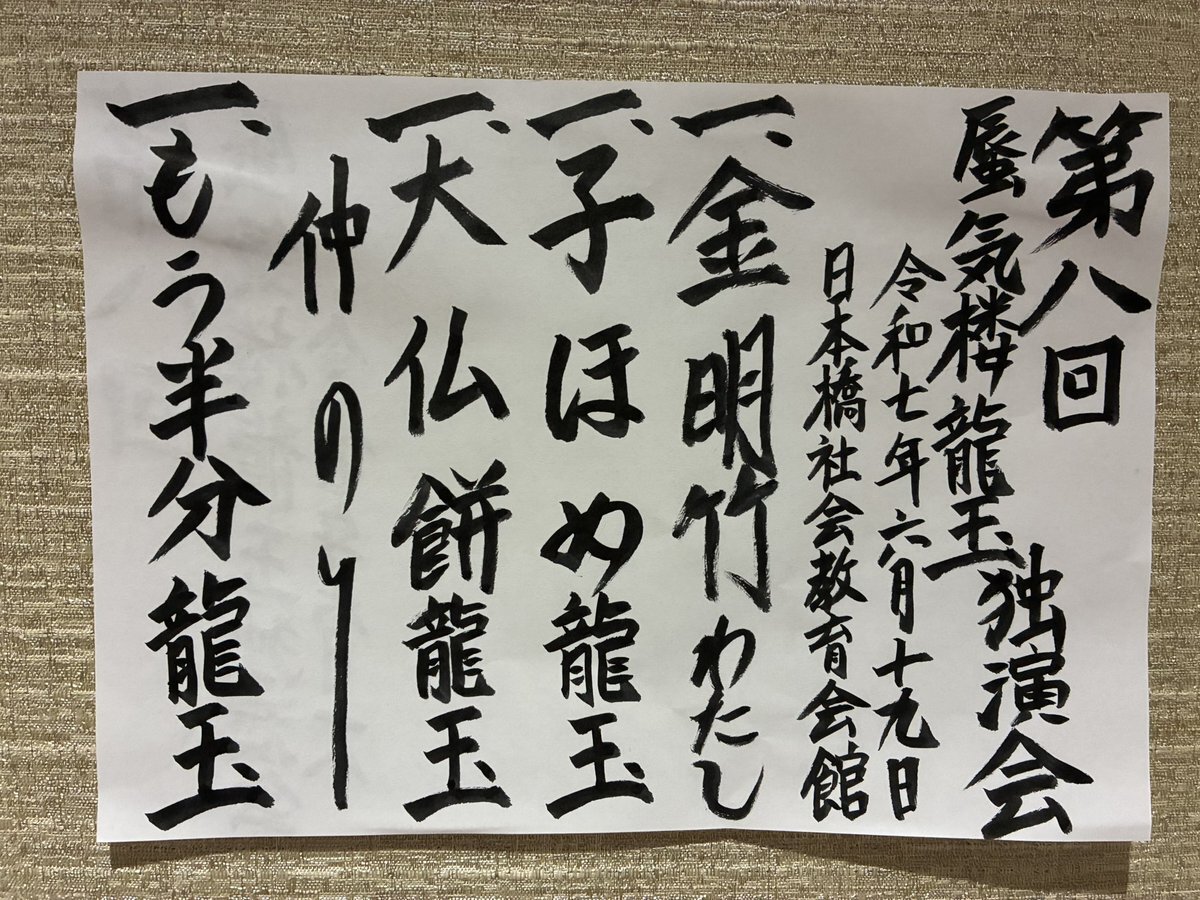 第八回
蜃気楼龍玉独演会
令和七年六月十九日
日本橋社会教育会館
一、金明竹 わたし
一、子ほめ 龍玉
一、大仏餅 龍玉
仲のり
一、もう半分 龍玉